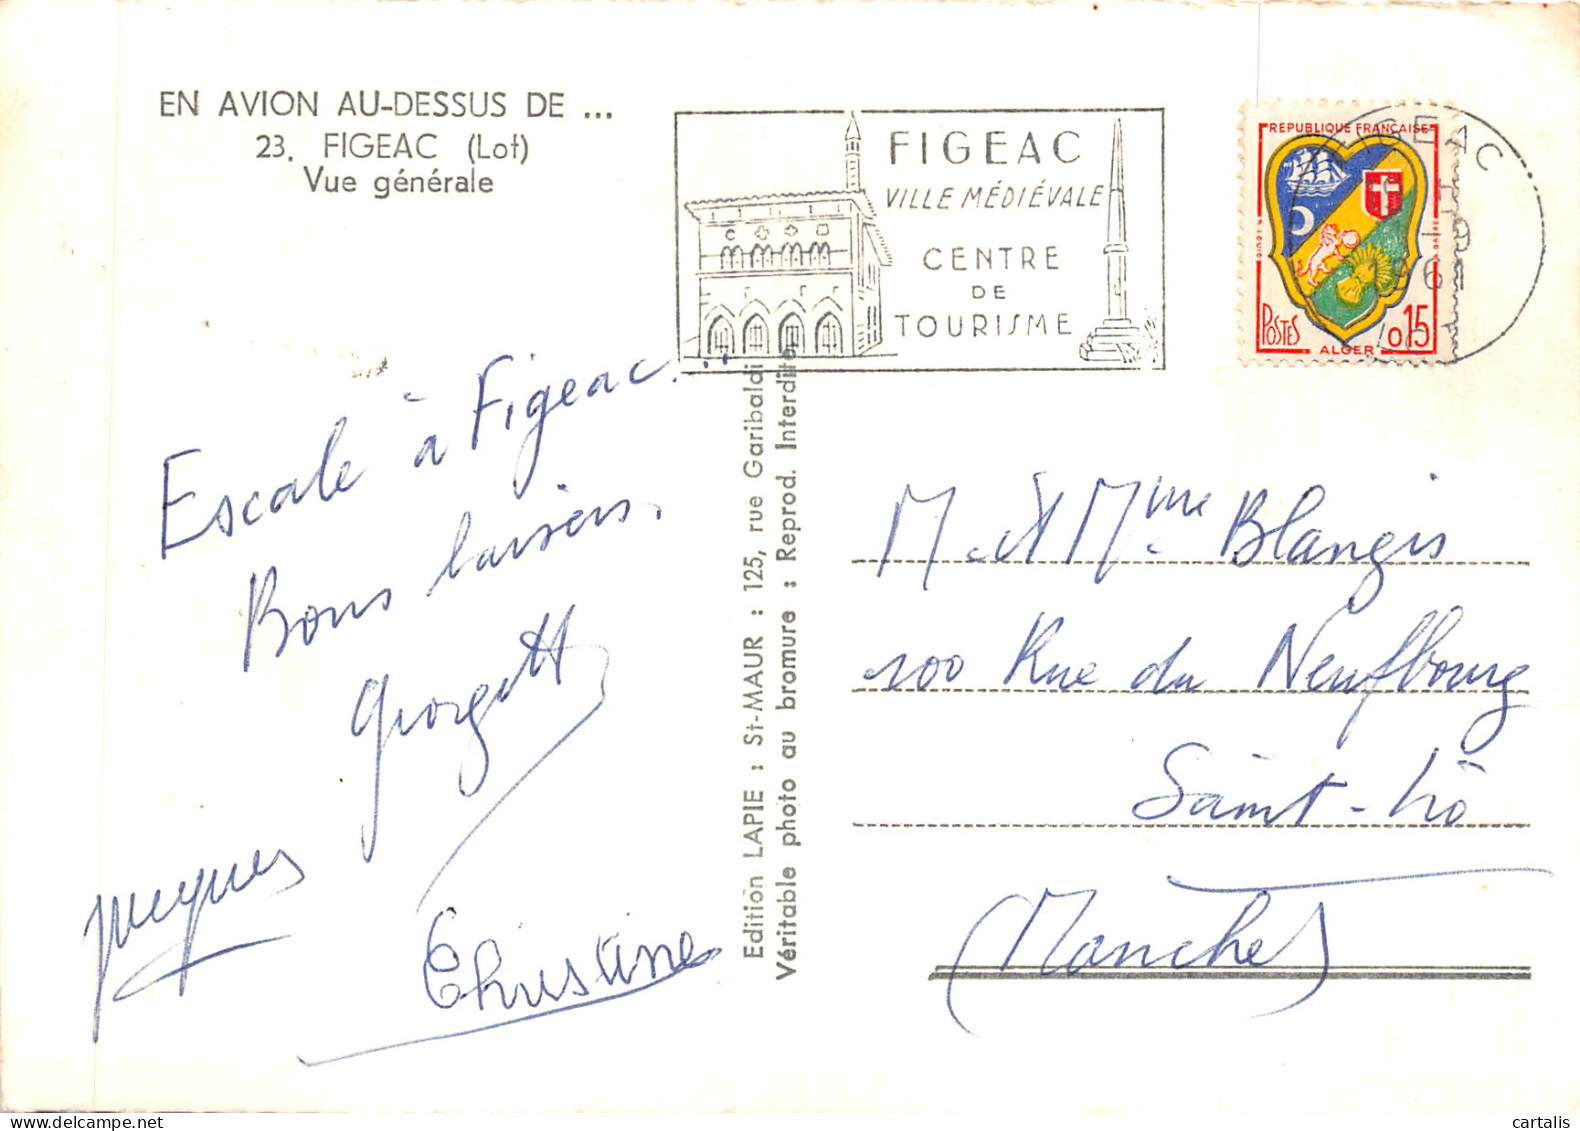 EN AVION AU-DESSUS DE ...
23. FIGEAC (Lot)
Vue générale
FIGEAC
VILLE MÉDIÉVALE
CENTRE
DE
TOURISME
REPUBLIQUE FRANÇAISE
POSTES
ALGER
0,15
FIGEAC
LOT
Escale à Figeac...
Bons baisers.
Georgette
Jacques
Christine
Edition LAPIE : St-MAUR : 125, rue Garibaldi
Véritable photo au bromure : Reprod. Interdite
M et Mme Blangis
100 Rue du Neufbourg
Saint-Lô
(Manche)
cartalis